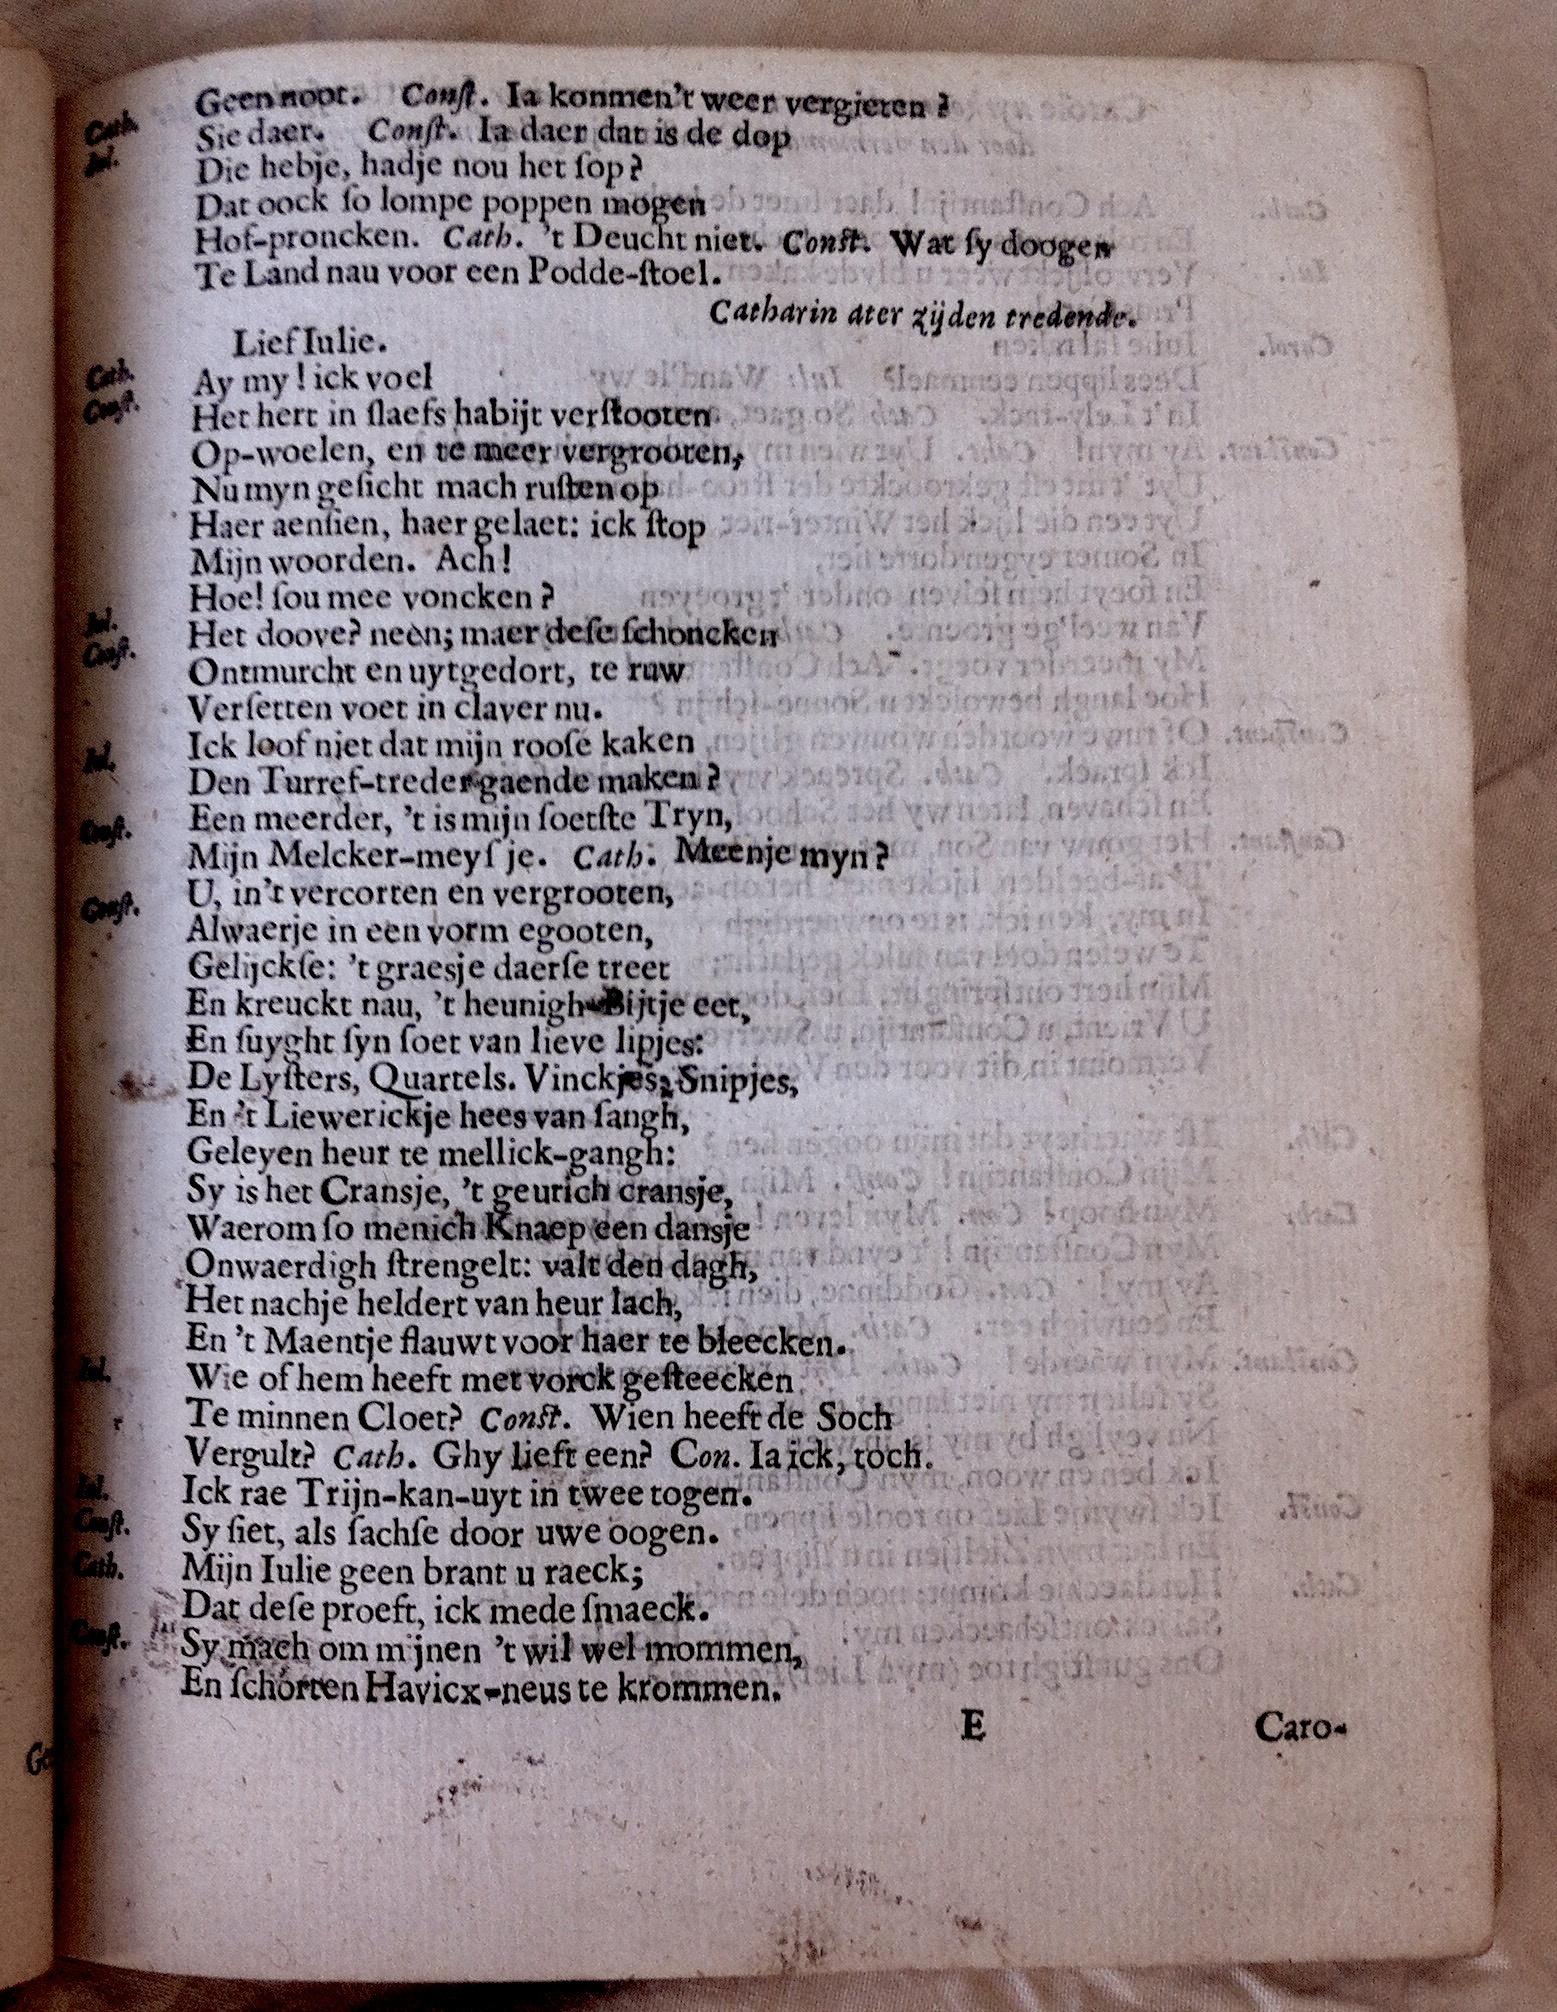 Geen noot. Conſt. Ia konmen't weer vergieten?
Cath. Sie daer. Conſt. Ia daer dat is de dop
Iul. Die hebje, hadje nou het ſop?
Dat oock ſo lompe poppen mogen
Hof-proncken. Cath. 't Deucht niet. Conſt. Wat ſy doogen
Te Land nau voor een Podde-ſtoel.
Catharin ater zijden tredende.
Lief Iulie.
Cath. Ay my! ick voel
Conſt. Het hert in ſlaefs habijt verſtooten
Op-woelen, en te meer vergrooten,
Nu myn geſicht mach ruſten op
Haer aenſien, haer gelaet: ick ſtop
Mijn woorden. Ach!
Hoe! ſou mee voncken?
Iul. Het doove? neen; maer deſe ſchoncken
Conſt. Ontmurcht en uytgedort, te ruw
Verſetten voet in claver nu.
Ick loof niet dat mijn rooſe kaken
Iul. Den Turref-treder gaende maken?
Een meerder, 't is mijn ſoetſte Tryn,
Conſt. Mijn Melcker-meyſje. Cath. Meenje myn?
U, in't vercorten en vergrooten,
Conſt. Alwaerje in een vorm egooten,
Gelijckſe: 't graesje daerſe treet
En kreuckt nau, 't heunigh-Bijtje eet,
En ſuyght ſyn ſoet van lieve lipjes:
De Lyſters, Quartels. Vinckjes, Snipjes,
En 't Liewerickje hees van ſangh,
Geleyen heur te mellick-gangh:
Sy is het Cransje, 't geurich cransje,
Waerom ſo menich Knaep een dansje
Onwaerdigh ſtrengelt: valt den dagh,
Het nachje heldert van heur lach,
En 't Maentje flauwt voor haer te bleecken.
Iul. Wie of hem heeft met vorck geſteecken
Te minnen Cloet? Conſt. Wien heeft de Soch
Vergult? Cath. Ghy lieft een? Con. Ia ick, toch.
Iul. Ick rae Trijn-kan-uyt in twee togen.
Conſt. Sy ſiet, als ſachſe door uwe oogen.
Cath. Mijn Iulie geen brant u raeck;
Dat deſe proeft, ick mede ſmaeck.
Conſt. Sy mach om mijnen 't wil wel mommen,
En ſchorten Havicx-neus te krommen.
E Caro-